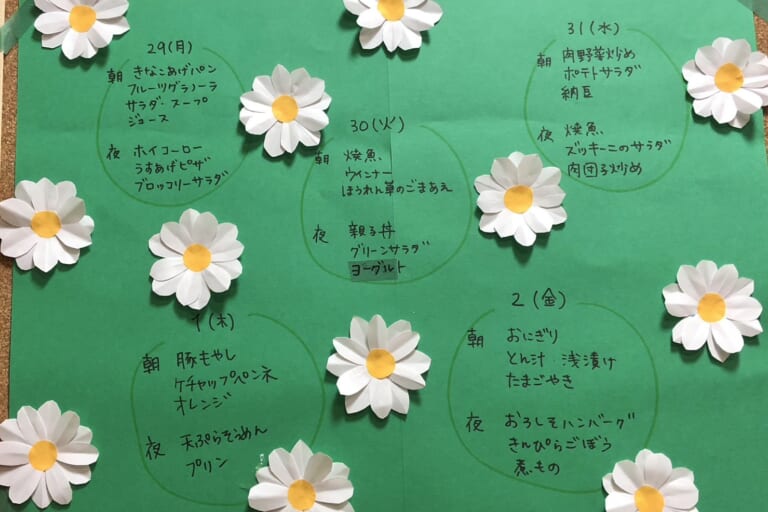 29(月)
朝 きなこあげパン
フルーツグラノーラ
サラダ・スープ
ジュース
夜 ホイコーロー
うすあげピザ
ブロッコリーサラダ
30(火)
朝 焼魚、
ウインナー
ほうれん草のごまあえ
夜 親子丼
グリーンサラダ
ヨーグルト
31(水)
朝 肉野菜炒め
ポテトサラダ
納豆
夜 焼魚、
ズッキーニのサラダ
肉団子炒め
1(木)
朝 豚もやし
ケチャップペンネ
オレンジ
夜 天ぷらそうめん
プリン
2(金)
朝 おにぎり
とん汁 浅漬け
たまごやき
夜 おろしそハンバーグ
きんぴらごぼう
煮もの